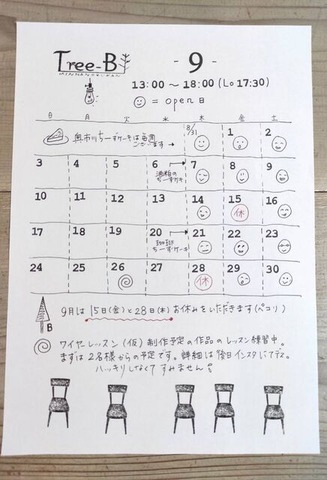 Tree-B
- 9 -
13:00〜18:00 (Lo 17:30)
= open日
日 月 火 水 木 金 土
8/31 1 2
3 4 5 6 7 8 9
10 11 12 13 14 15 16
休
17 18 19 20 21 22 23
24 25 26 27 28 29 30
休
B
9月は15日(金)と28日(木)お休みをいただきます(ペコリ)
ワイヤレッスン(仮)制作予定の作品のレッスン練習中。
まずは2名様からの予定です。詳細は後日インスタにてデス。
ハッキリしなくてすみません